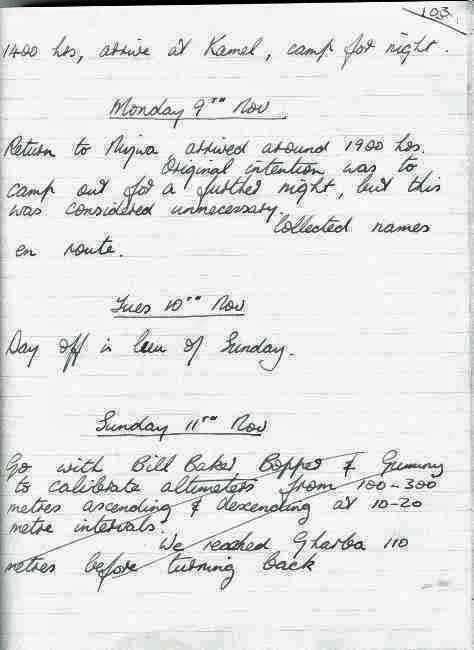 103
1400 hrs, arrive at Kamel, camp for night.
Monday 9TH Nov
Return to Nizwa arrived around 1900 hrs.
Original intention was to
camp out for a further night, but this
was considered unnecessary.
Collected names
en route.
Tues 10TH Nov
Day off in lieu of Sunday.
Sunday 11TH Nov
Go with Bill Baker Bopper & Gummy
to calibrate altimeters from 100-300
metres ascending & descending at 10-20
metre intervals.
We reached Gharba 110
metres before turning back